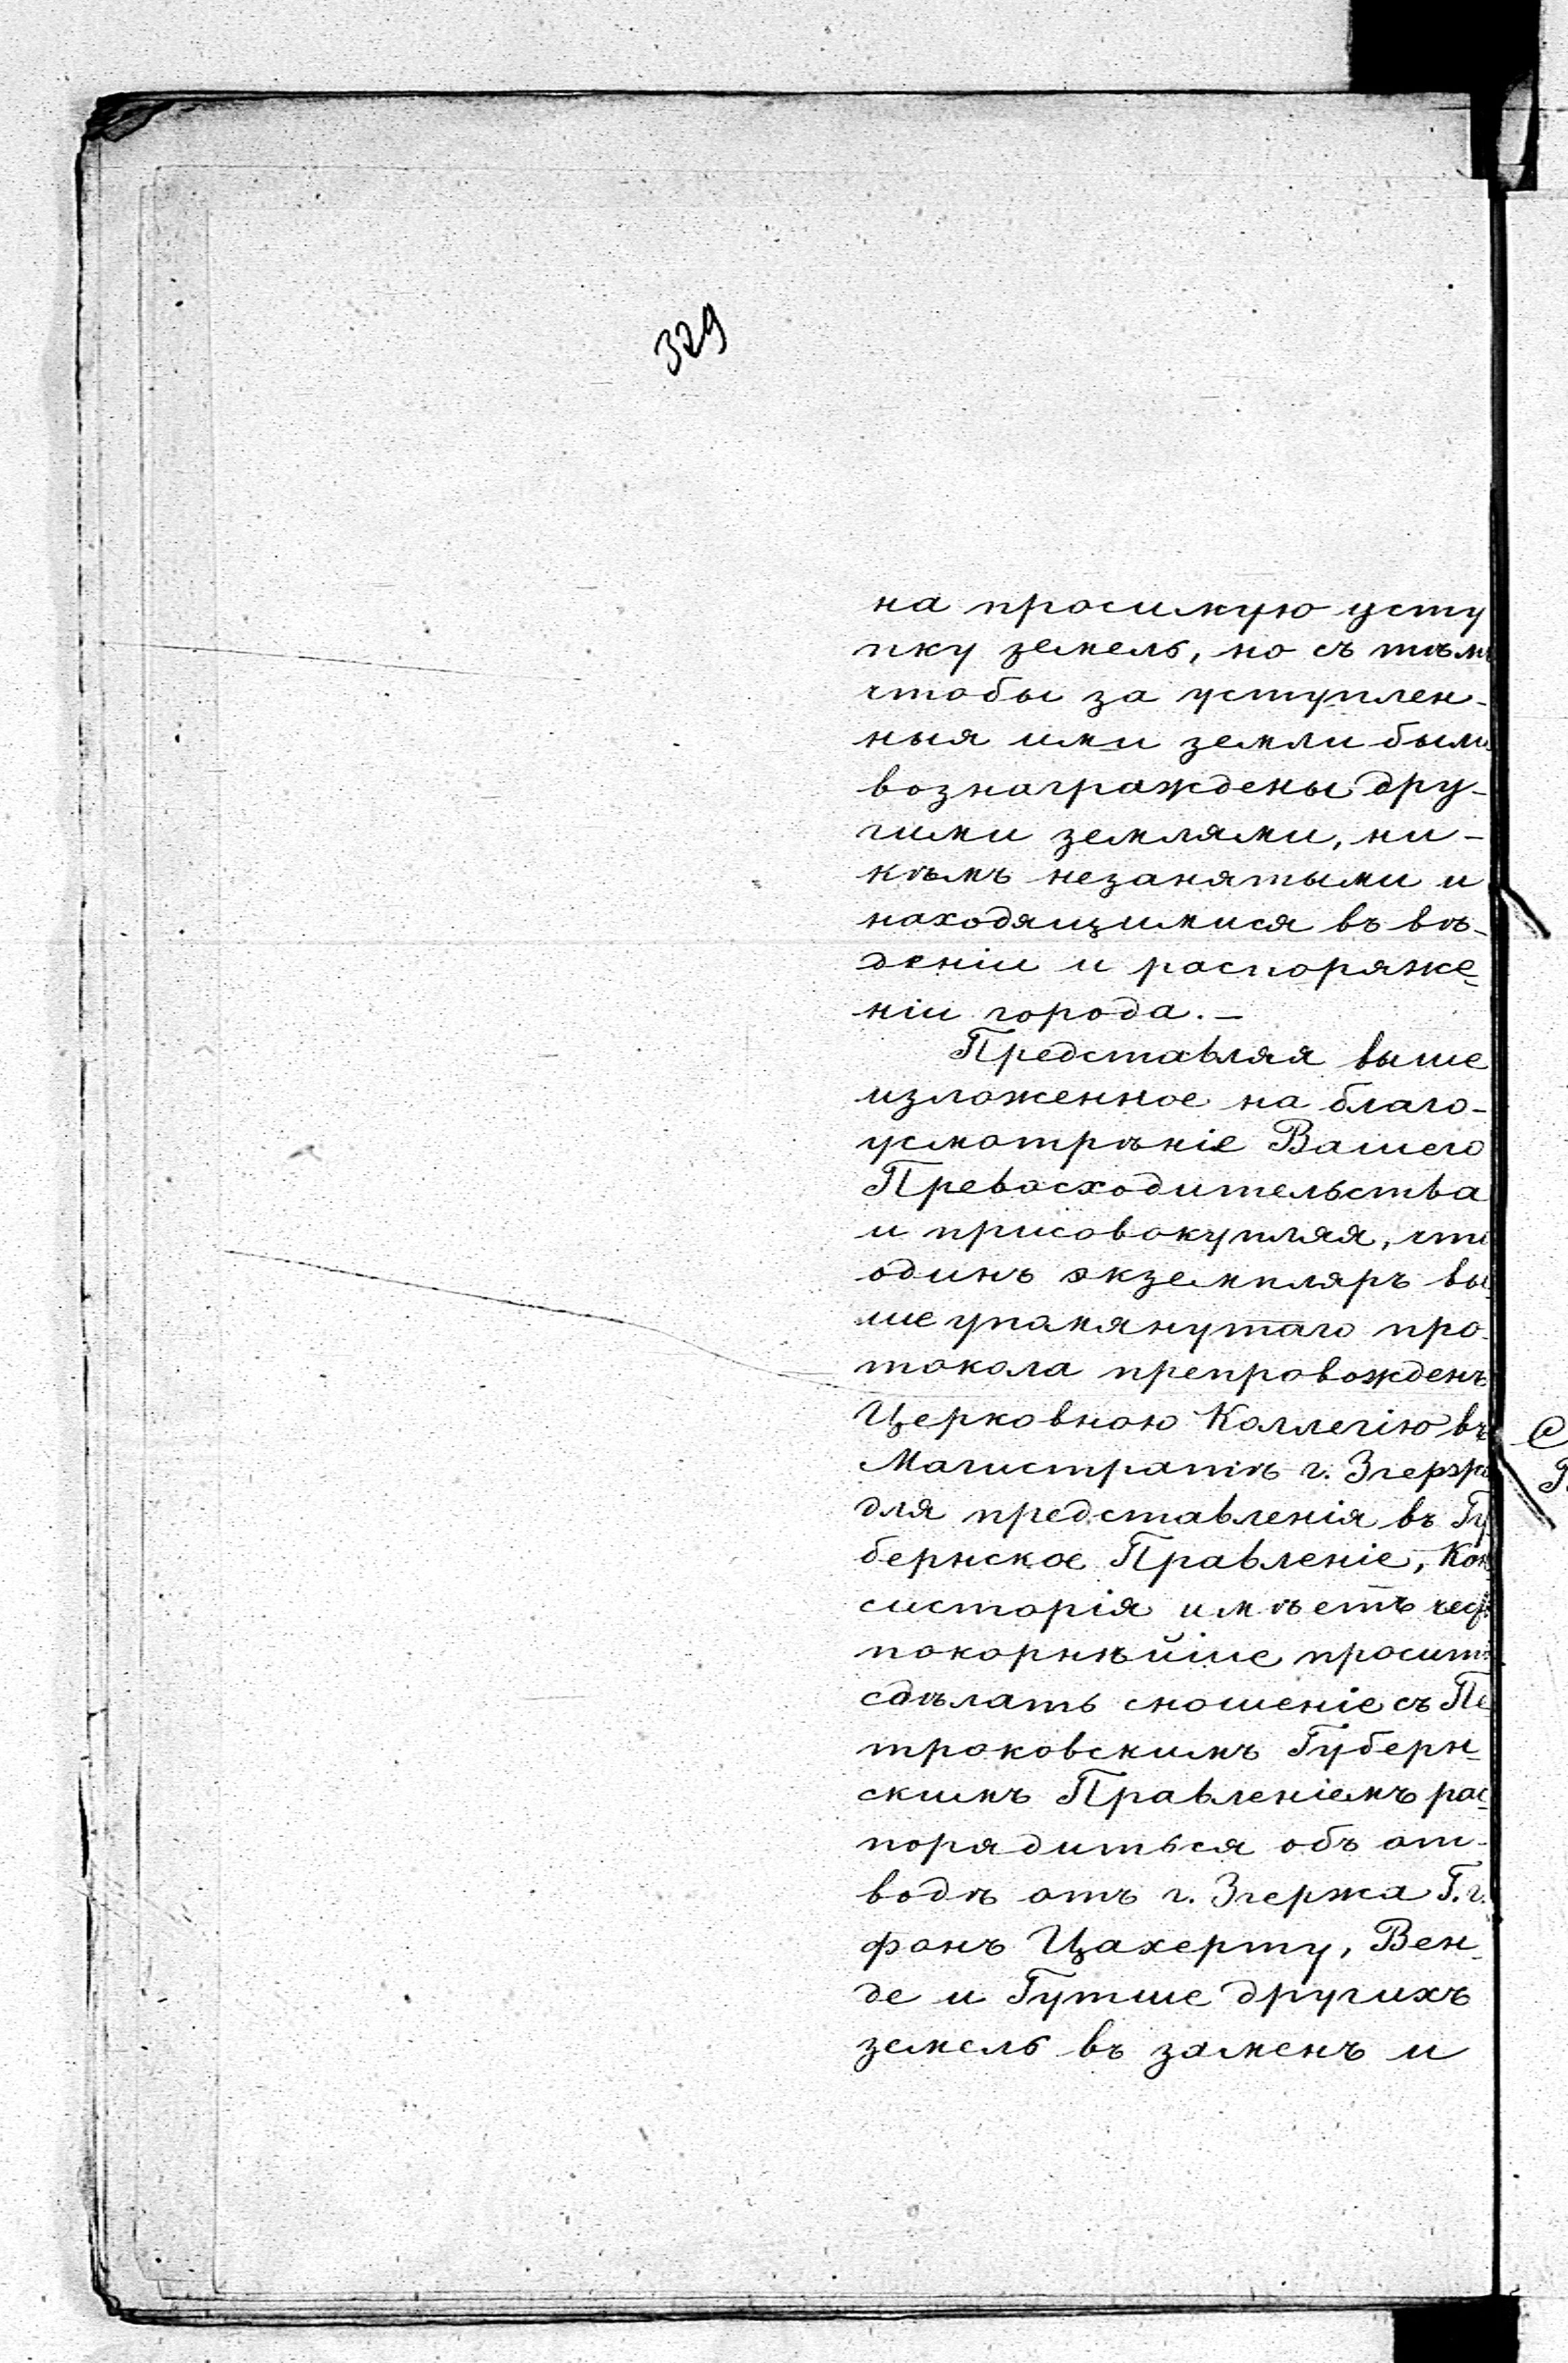 329
на просимую усту
пку земель, но съ тѣмъ
чтобы за уступлен-
ныя ими земли были
вознаграждены дру-
гими землями, ни-
кѣмъ незанятыми и
находящимися въ вѣ-
деніи и распоряже-
ніи города. —
Представляя выше
изложенное на благо-
усмотрѣніе Вашего
Превосходительства
и присовокупляя, что
одинъ экземпляръ вы-
ше упомянутаго про-
токола препровожденъ
Церковною Коллегію въ
Магистратъ г. Згержа
для представленія въ Гу-
бернское Правленіе, Кон
систорія имѣетъ честь
покорнѣйше просить
сдѣлать сношеніе съ Пе
троковскимъ Губерн-
скимъ Правленіемъ рас-
порядиться объ от-
водѣ отъ г. Згержа Г.г.
фонъ Цахерту, Вен-
де и Гутше другихъ
земель въ заменъ и